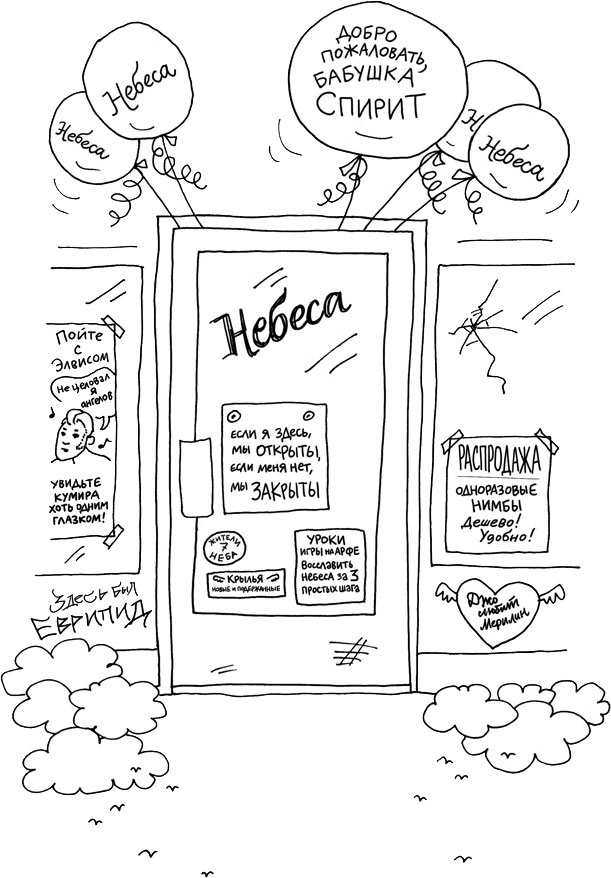 Небеса
Небеса
ДОБРО
ПОЖАЛОВАТЬ,
БАБУШКА
СПИРИТ
Н
Небеса
Небеса
Пойте
с
Элвисом
Не целовал
я
ангелов
УВИДЬТЕ
КУМИРА
ХОТЬ ОДНИМ
ГЛАЗКОМ!
ЕСЛИ Я ЗДЕСЬ,
МЫ ОТКРЫТЫ,
ЕСЛИ МЕНЯ НЕТ,
МЫ ЗАКРЫТЫ
ЖИТЕЛИ
7
НЕБА
КРЫЛЬЯ
НОВЫЕ И ПОДЕРЖАННЫЕ
УРОКИ
ИГРЫ НА АРФЕ
Восславить
НЕБЕСА ЗА 3
ПРОСТЫХ ШАГА
РАСПРОДАЖА
ОДНОРАЗОВЫЕ
НИМБЫ
Дешево!
Удобно!
Здесь был
ЕВРИПИД
Джо
любит
Мерилин